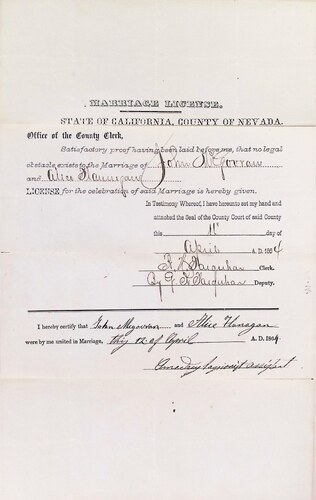 MARRIAGE LICENSE.
STATE OF CALIFORNIA, COUNTY OF NEVADA.
Office of the County Clerk,
Satisfactory proof having been laid before me, that no legal
obstacle exists to the Marriage of John
and Alice Flannigan
LICENSE for the celebration of said Marriage is hereby given.
In Testimony Whereof, I have hereunto set my hand and
attached the Seal of the County Court of said County
this 11" day of
April A. D. 1864
Clerk.
By Deputy.
I hereby certify that John and Alice Flanagan
were by me united in Marriage, this 12 of April A. D. 1864.
assistant